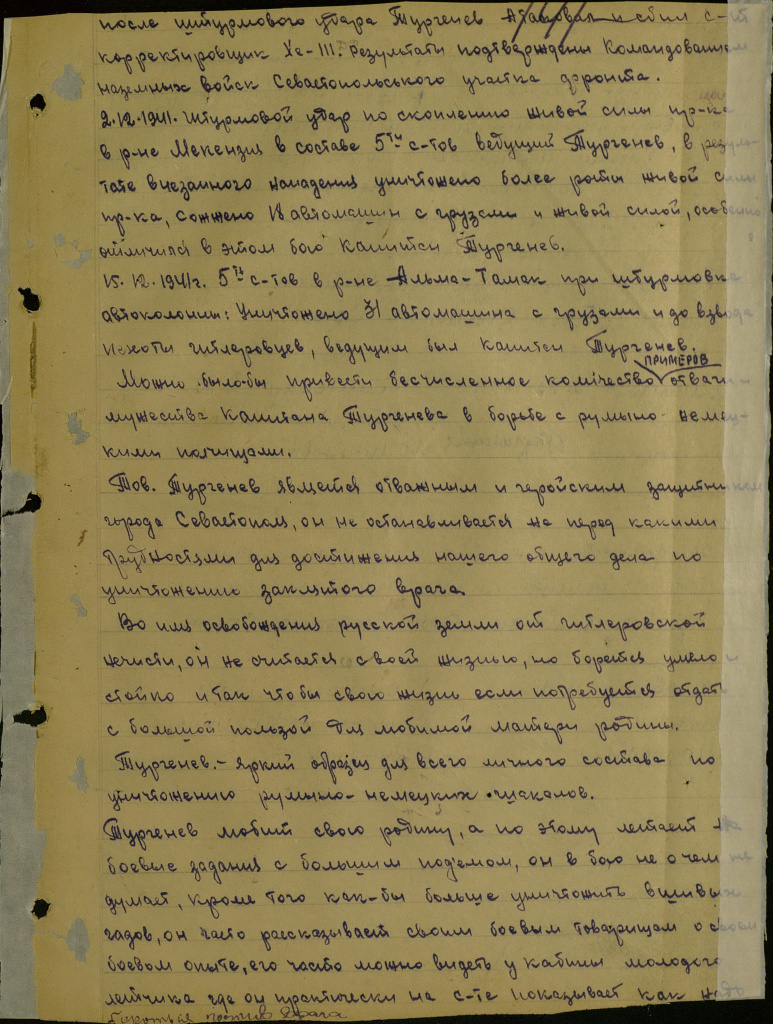 после штурмового удара Тургенев атаковал и сбил с-т
корректировщик Хе-III. Результаты подтверждены Командованием
наземных войск Севастопольского участка фронта.
2.12.1941. Штурмовой удар по скоплению живой силы пр-ка
в р-не Мекензия в составе 5ти с-тов ведущий Тургенев, в резуль-
тате внезапного нападения уничтожено более роты живой силы
пр-ка, сожжено 18 автомашин с грузами и живой силой, особенно
отличился в этом бою Капитан Тургенев.
15.12.1941г. 5ть с-тов в р-не Альма-Тамак при штурмовке
автоколонны: Уничтожено 31 автомашина с грузами и до взвода
пехоты гитлеровцев, ведущим был капитан Тургенев.
ПРИМЕРОВ
Можно было-бы привести бесчисленное количество отваги и
мужества Капитана Тургенева в борьбе с румыно-немец-
кими полчищами.
Тов. Тургенев является отважным и геройским защитником
города Севастополя, он не останавливается не перед какими
трудностями для достижения нашего общего дела по
уничтожению заклятого врага.
Во имя освобождения русской земли от гитлеровской
нечисти, он не считается с своей жизнью, но борется умело и
стойко и так чтобы свою жизнь если потребуется отдать
с большой пользой для любимой матери родины.
Тургенев.- яркий образец для всего личного состава по
уничтожению румыно-немецких шакалов.
Тургенев любит свою родину, а по этому летает на
боевые задания с большим под'емом, он в бою не о чем не
думает, кроме того как-бы больше уничтожить вшивых
гадов, он часто рассказывает своим боевым товарищам о своем
боевом опыте, его часто можно видеть у кабины молодого
летчика где он практически на с-те показывает как надо
бороться против врага